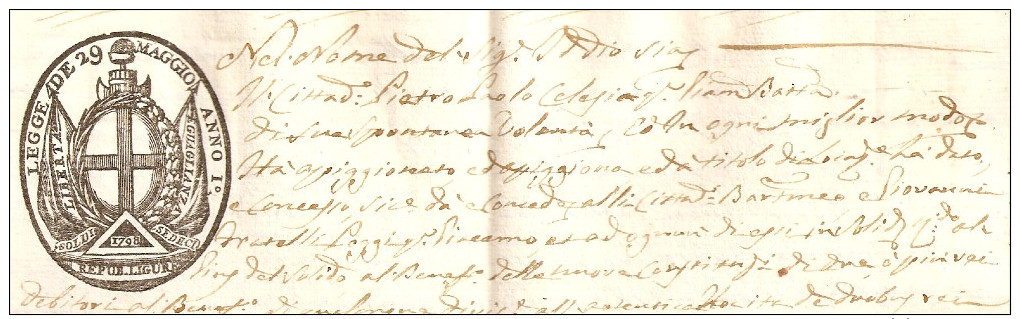 LEGGE DE 29 MAGGIO ANNO I°.
LIBERTA
EGUAGLIANZA
SOLDI SEDECI
1798
REPUB. LIGURE
Nel Nome del Sig.r Iddio sia
Il Cittad.o Pietro Paolo Celesia q. Giam Batta
di sua spontanea Volontà, ed In ogni miglior modo
Ha appiggionato ed appiggiona e dà titolo di ha dato,
e Concesso dà e Concede alli Cittad.i Bartomeo e Giovanni
fratelli Poggi q. Giacomo et ad ognuno di essi in Solid.
del Solido al Benef.o delle nuove Constituz.i di due o più rei
debitori al Benef.o di autentica hoc ita de duobus reis